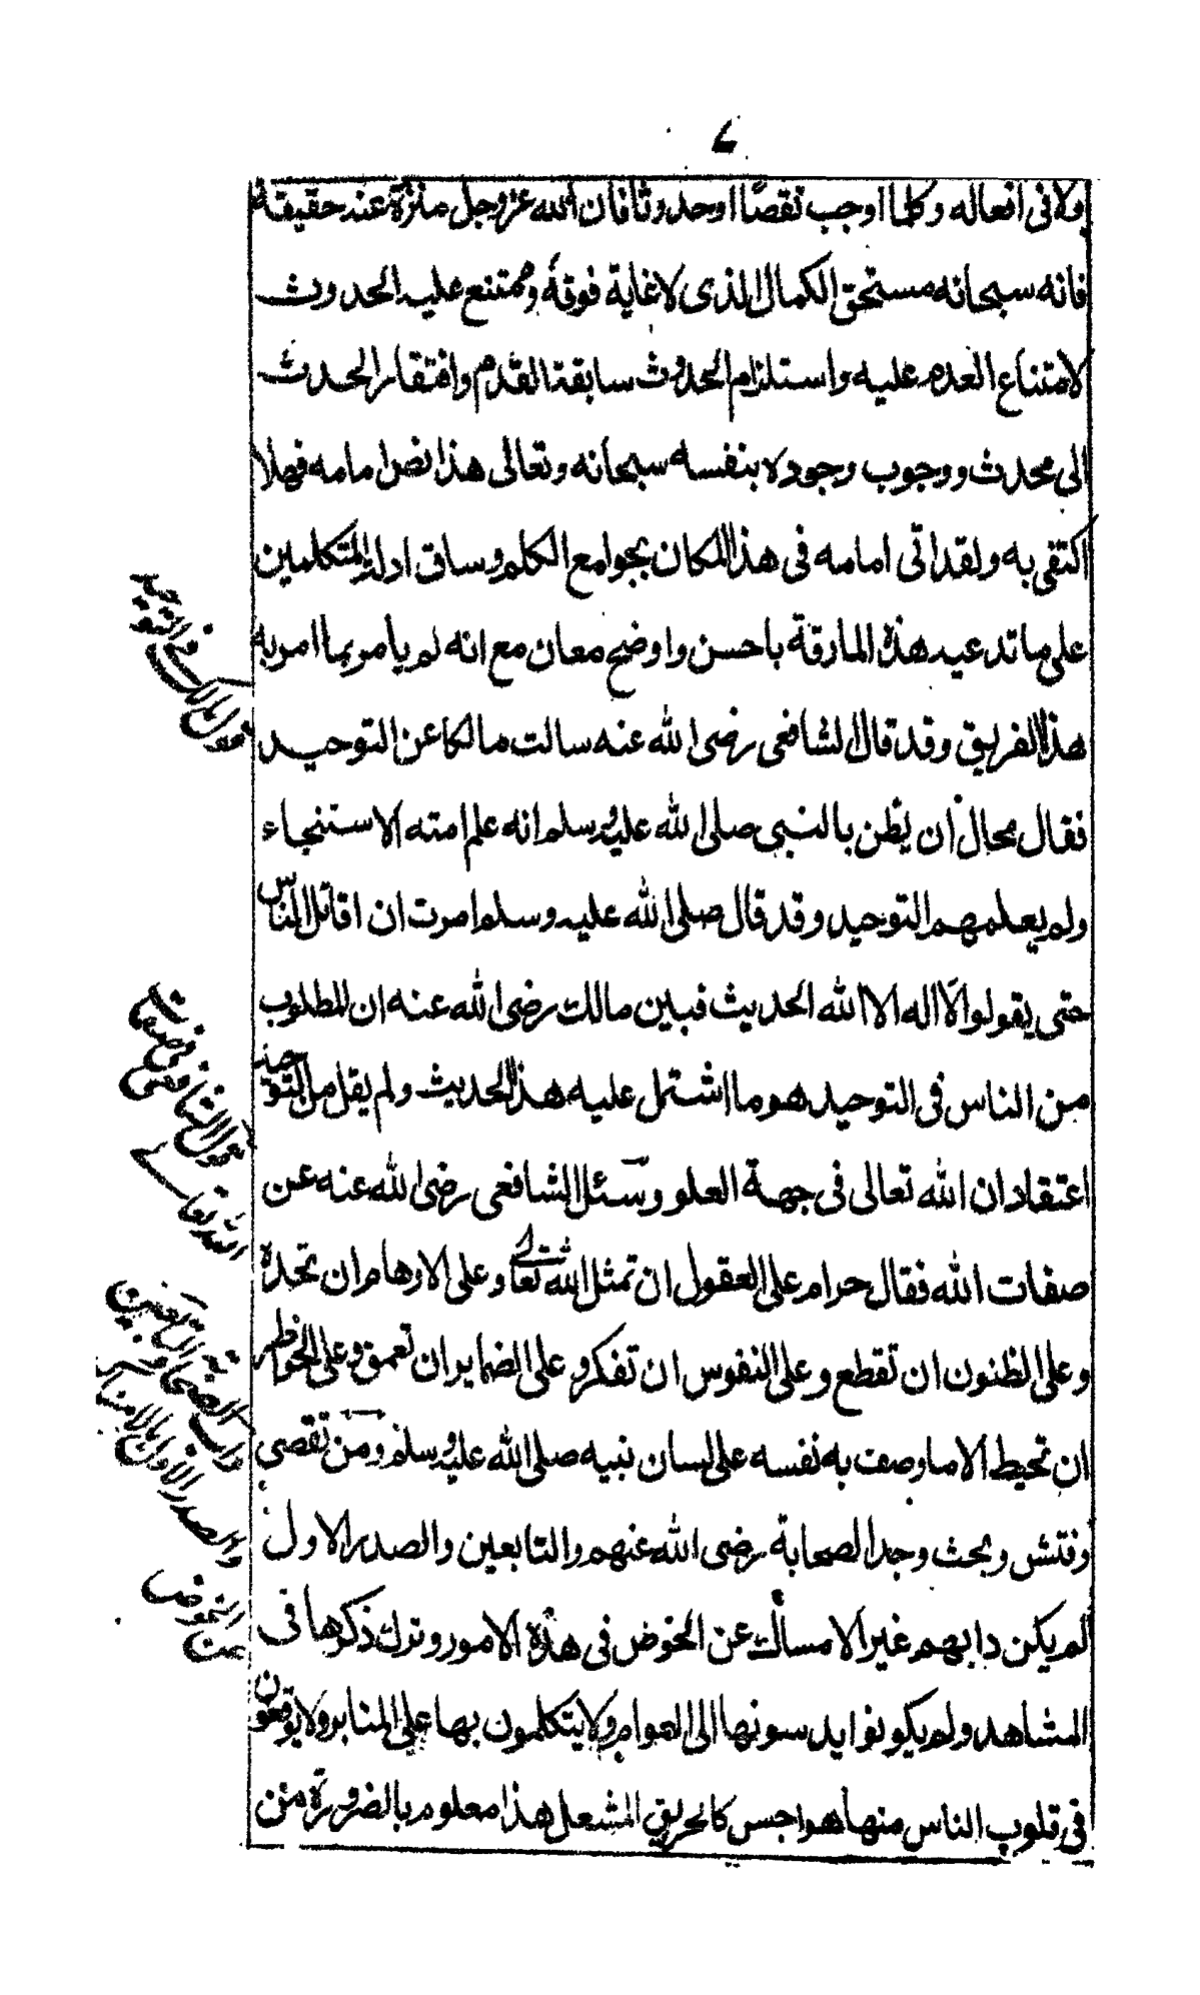 ولا فى افعاله وكلما اوجب نقصًا اوحدوثا فان الله عز وجل منزه عنه حقيقة
فانه سبحانه مستحق الكمال الذى لا غاية فوقه وممتنع عليه الحدوث
لامتناع العدم عليه واستلزام الحدوث سابقة القدم وافتقار الحدث
الى محدث ووجوب وجوده بنفسه سبحانه وتعالى هذا نص امامه فهلا
اكتفى به ولقد اتى امامه فى هذا المكان بجوامع الكلم وساق ادلة المتكلمين
على ما تدعيه هذه المارقة باحسن واوضح معان مع انه لم يامر بما امر به
هذا الفريق وقد قال الشافعى رضى الله عنه سالت مالكا عن التوحيد
فقال محال أن يظن بالنبى صلى الله عليه وسلم انه علم امته الاستنجاء
ولم يعلمهم التوحيد وقد قال صلى الله عليه وسلم امرت ان اقاتل الناس
حتى يقولوا لا اله الا الله الحديث فبين مالك رضى الله عنه ان المطلوب
من الناس فى التوحيد هو ما اشتمل عليه هذا الحديث ولم يقل من التوحيد
اعتقاد ان الله تعالى فى جهة العلو وسئل الشافعى رضى الله عنه عن
صفات الله فقال حرام على العقول ان تمثل الله تعالى وعلى الاوهام ان تحده
وعلى الظنون ان تقطع وعلى النفوس ان تفكر وعلى الضماير ان تعمق وعلى الخواطر
ان تحيط الا ما وصف به نفسه على لسان نبيه صلى الله عليه وسلم ومن تقصى
وفتش وبحث وجد الصحابة رضى الله عنهم والتابعين والصدر الاول
لم يكن دابهم غير الامساك عن الخوض فى هذه الامور وترك ذكرها فى
المشاهد ولم يكونوا يدسونها الى العوام ولا يتكلمون بها على المنابر ولا يوقعون
فى قلوب الناس منها هواجس كالحريق المشعل هذا معلوم بالضرورة من
قول المالك فى التوحيد
قول الشافعى فى صفات
الله تعالى
داب الصحابة والتابعين
والصدر الاول الامساك
عن الخوض